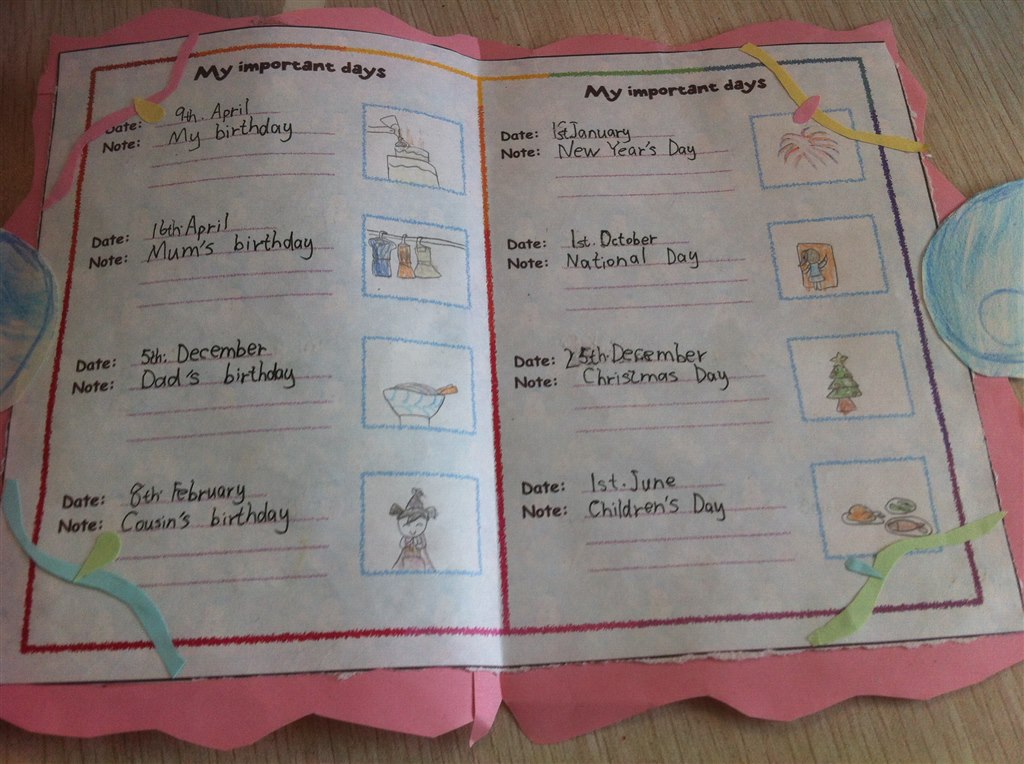 My important days
Date: 9th. April
Note: My birthday
Date: 16th April
Note: Mum's birthday
Date: 5th. December
Note: Dad's birthday
Date: 8th February
Note: Cousin's birthday
My important days
Date: 1st January
Note: New Year's Day
Date: 1st. October
Note: National Day
Date: 25th December
Note: Christmas Day
Date: 1st. June
Note: Children's Day